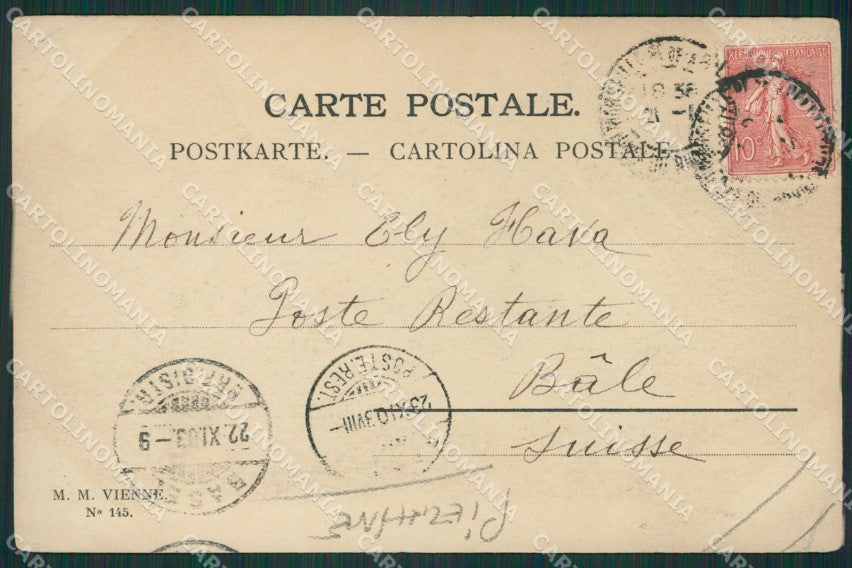 CARTE POSTALE.
POSTKARTE. — CARTOLINA POSTALE
REPUBLIQUE FRANÇAISE
10c
Monsieur Ely Hava
Poste Restante
Bâle
Suisse
POSTE.REST.
23.XI.03.VIII-
22.XI.03-9
BAS
M. M. VIENNE.
No 145.
CARTOLINOMANIA